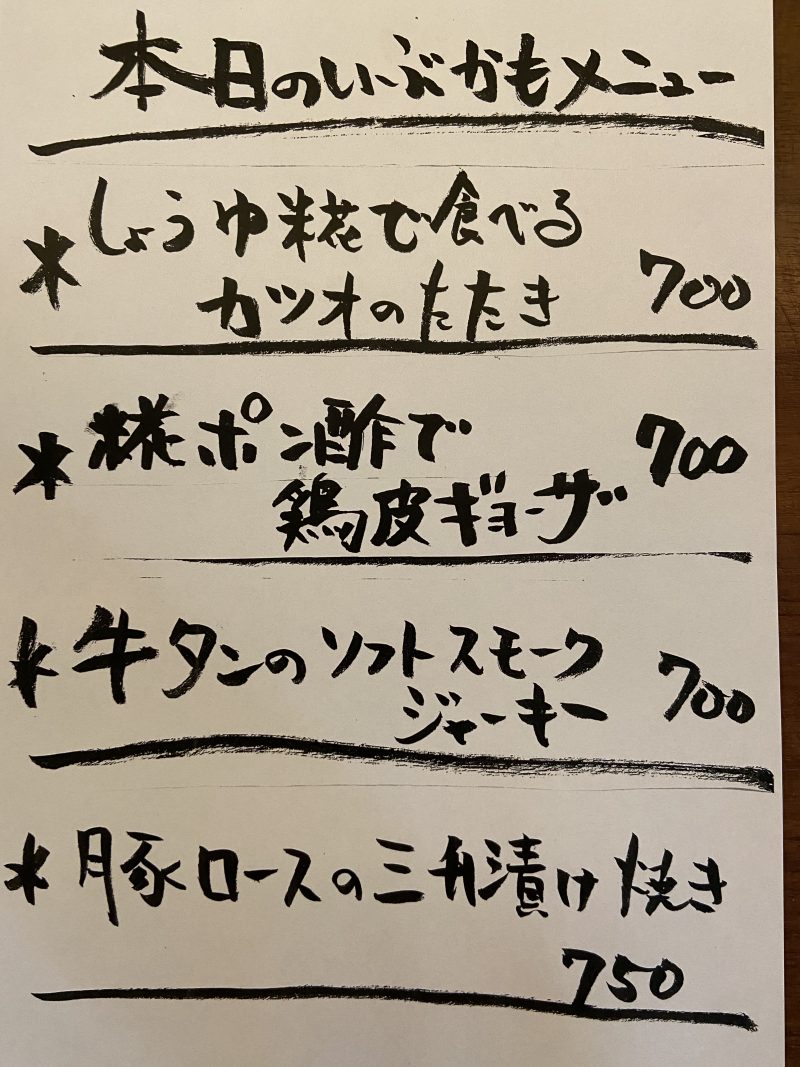 本日のいぶかもメニュー
* しょうゆ糀で食べる
カツオのたたき 700
* 糀ポン酢で 700
鶏皮ギョーザ
* 牛タンのソフトスモーク
ジャーキー 700
* 豚ロースの三升漬け焼き
750